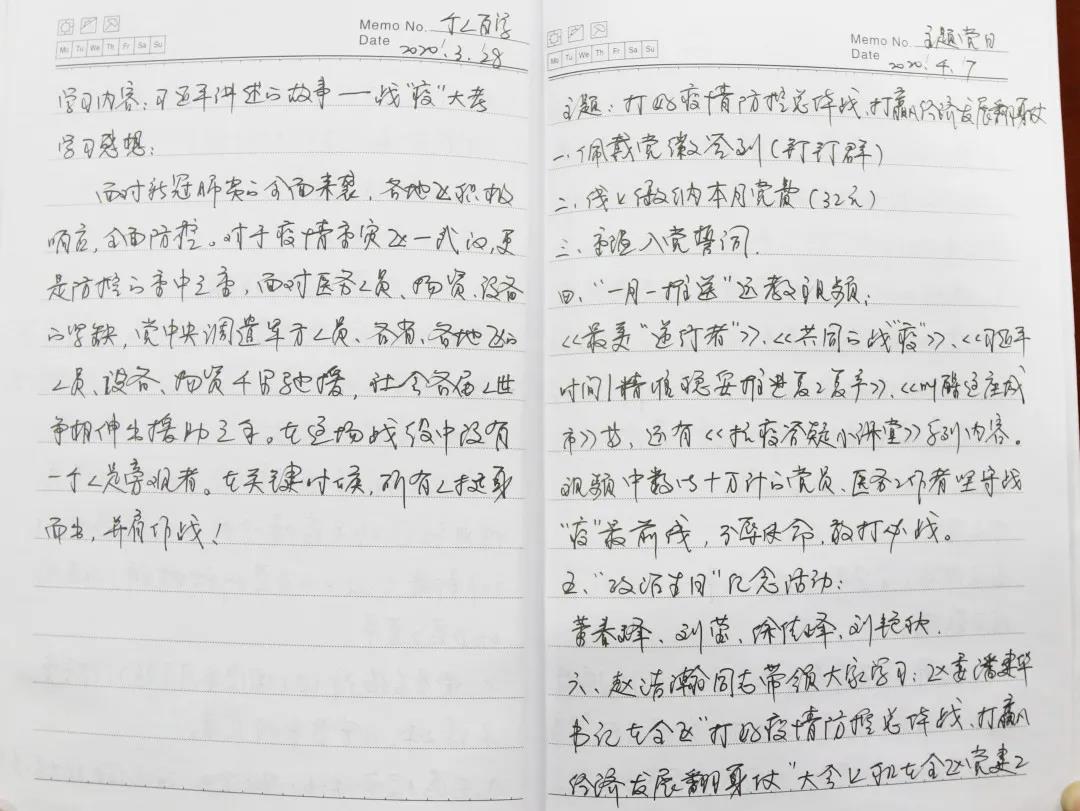 Memo No. 个人百字
Date 2020.3.28
Mo Tu We Th Fr Sa Su
学习内容：习近平讲述的故事——战“疫”大考
学习感想：
面对新冠肺炎的全面来袭，各地区积极
响应，全面防控。对于疫情重灾区—武汉，更
是防控的重中之重，面对医务人员、物资、设备
的紧缺，党中央调遣军方人员、各省、各地区的
人员、设备、物资千里驰援，社会各届人世
争相伸出援助之手。在这场战役中没有
一个人是旁观者。在关键时候，所有人挺身
而出，并肩作战！
Memo No. 主题党日
Date 2020.4.7
Mo Tu We Th Fr Sa Su
主题：打好疫情防控总体战，打赢经济发展翻身仗
一、佩戴党徽签到（钉钉群）
二、线上缴纳本月党费（32元）
三、重温入党誓词.
四、“一月一推送”远教视频：
《最美“逆行者”》、《共同的战“疫”》、《习近平
时间|精准稳妥推进复工复产》、《叫醒这座城
市》等，还有《抗疫答疑小课堂》系列内容。
视频中数以十万计的党员、医务工作者坚守战
“疫”最前线，不辱使命，敢打必战。
五、“政治生日”纪念活动：
刘莹、刘艳秋.
六、赵浩瀚同志带领大家学习：区委潘建华
书记在全区“打好疫情防控总体战、打赢
经济发展翻身仗”大会上和在全区党建工